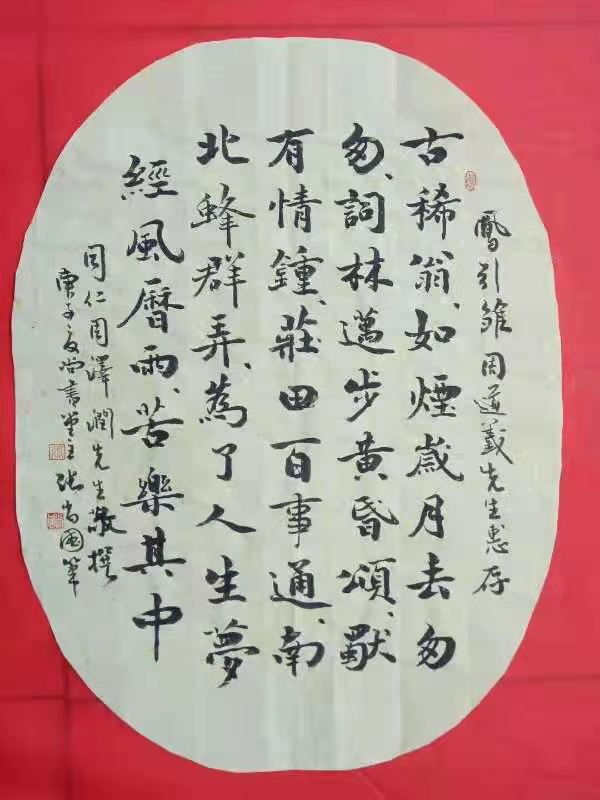 鳳引雛 周道義先生惠存
古稀翁、如煙歲月去匆
匆、詞林邁步黃昏頌、獻
有情鍾、莊田百事通、南
北蜂群弄、為了人生夢
經風曆雨、苦樂其中
同仁周澤潤先生敬撰
庚子夏尚書堂主張尚國筆